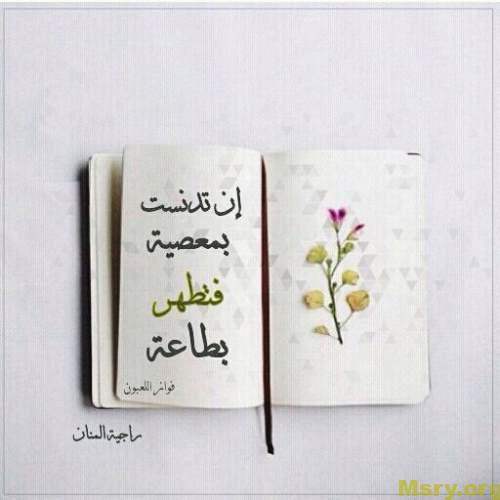 إن تدنست
بمعصية
فتطهر
بطاعة
فواز اللعبون
راجية المنان
Msry.org